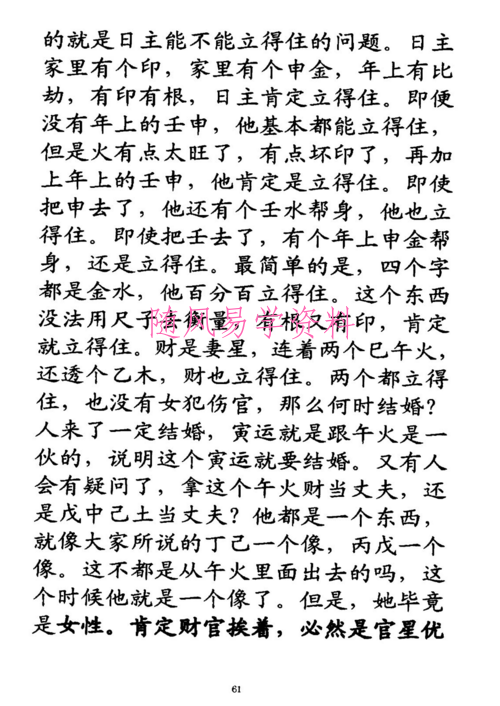 的就是日主能不能立得住的问题。日主
家里有个印，家里有个申金，年上有比
劫，有印有根，日主肯定立得住。即便
没有年上的壬申，他基本都能立得住，
但是火有点太旺了，有点坏印了，再加
上年上的壬申，他肯定是立得住。即使
把申去了，他还有个壬水帮身，他也立
得住。即使把壬去了，有个年上申金帮
身，还是立得住。最简单的是，四个字
都是金水，他百分百立得住。这个东西
没法用尺子去衡量，有根又有印，肯定
就立得住。财是妻星，连着两个巳午火，
还透个乙木，财也立得住。两个都立得
住，也没有女犯伤官，那么何时结婚？
人来了一定结婚，寅运就是跟午火是一
伙的，说明这个寅运就要结婚。又有人
会有疑问了，拿这个午火财当丈夫，还
是戊中己土当丈夫？他都是一个东西，
就像大家所说的丁己一个像，丙戊一个
像。这不都是从午火里面出去的吗，这
个时候他就是一个像了。但是，她毕竟
是女性。肯定财官挨着，必然是官星优
随风易学资料
61